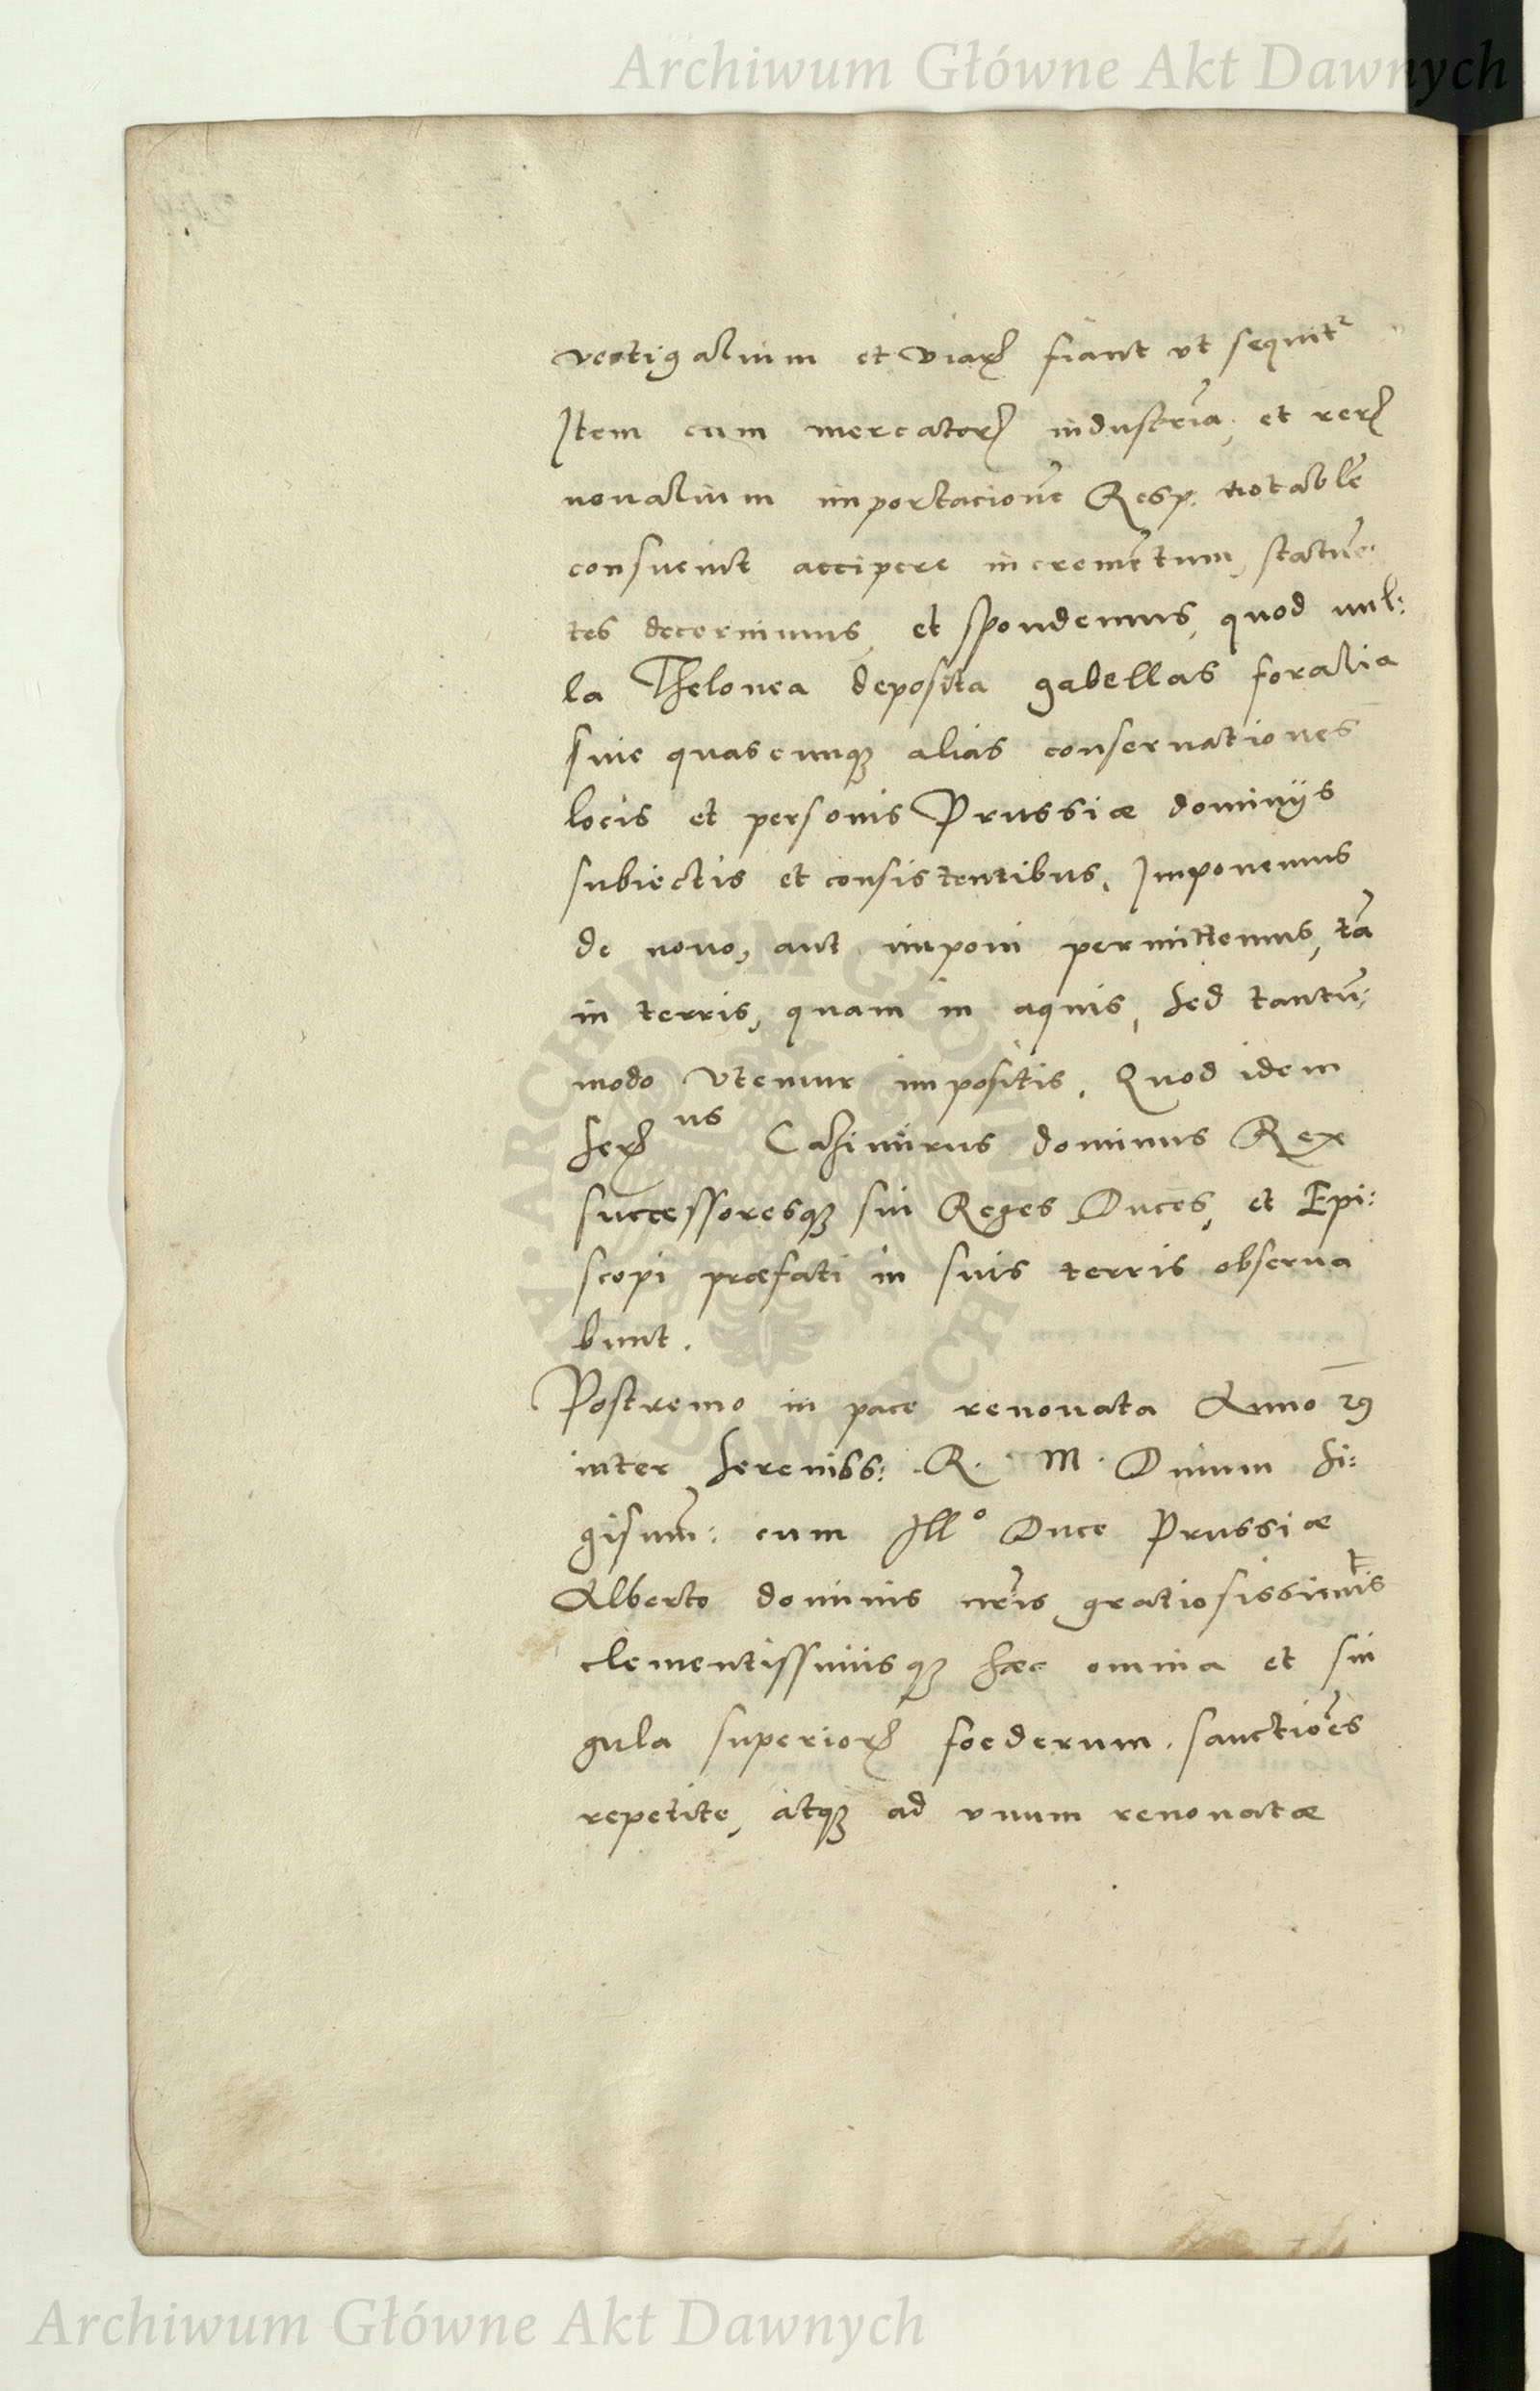 Archiwum Główne Akt Dawnych
vectigalium et viaꝝ fiant vt sequit᷑
Item cum mercatorꝝ industria, et rerꝝ
venalium importacione Resp. notabile
consueuit accipere incremẽtum, statuẽ
tes decernimus, et spondemus, quod nul:
la Thelonea deposita gabellas foralia
siue quascunqꝫ alias conseruationes
locis et personis Prussiæ dominijs
subiectis et consistentibus, Imponemus
de nouo, aut imponi permittemus, tã
in terris, quam in aquis, sed tantũ:
modo vtemur impositis. Quod idem
Serꝝ us Casimirus dominus Rex
successoresqꝫ sui Reges Duces, et Epi:
scopi præfati in suis terris obserua
bunt.
Postremo in pace renouata Anno 29
inter Sereniss: R. M. Diuum Si:
gisum̃: cum Illo Duce Prussiæ
Alberto dominis nr̃is gratiosissimis
clementissimisqꝫ hæc omnia et sin
gula superiorꝝ foederum sanctiões
repetite, atqꝫ ad vnum renouatæ
ARCHIWUM GŁÓWNE AKT DAWNYCH
Archiwum Główne Akt Dawnych